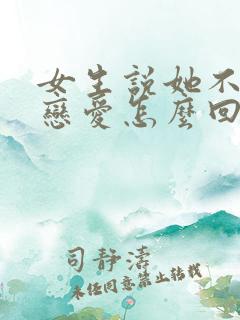 女生說她不
戀愛怎麼回
司靜濤
未經同意禁止轉載